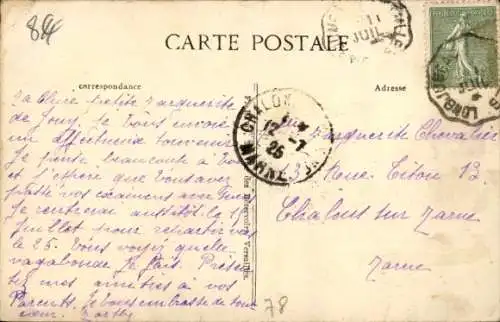 84
CARTE POSTALE
correspondance
Adresse
Ma chère petite Marguerite
de Jouy, je vous envoie
un affectueux souvenir
Je pense beaucoup à vous
et j'espère que vous avez
passé vos examens avec
Je rentrerai aussitôt le 14
Juillet pour
le 25. Vous voyez quelle
vagabonde je fais. Présen
tez mes amitiés à vos
Parents. Je vous embrasse de tout
cœur. Marthe
CHALONS
12 -7
25
MARNE
Marguerite Chevalier
Rue Titon 13
Chalons sur Marne
Marne
11
JUIL
78